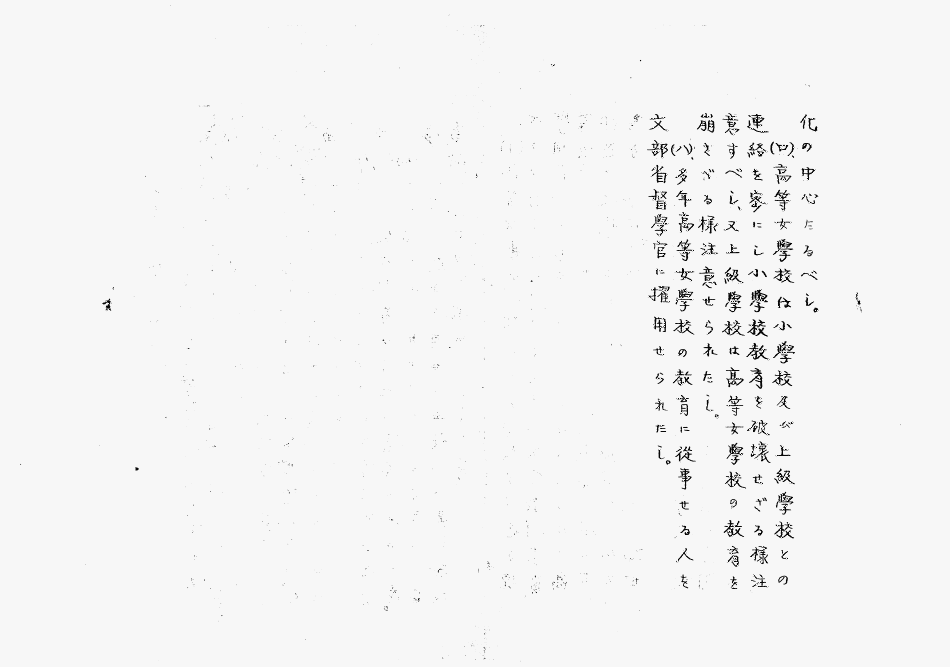 化の中心たるべし。
(ロ)、高等女學校は小學校及び上級學校との
連絡を密にし小學校教育を破壊せざる様注
意すべし、又上級學校は高等女學校の教育を
崩さゞる様注意せられたし。
(ハ)、多年高等女學校の教育に從事せる人を
文部省督學官に擢用せられたし。